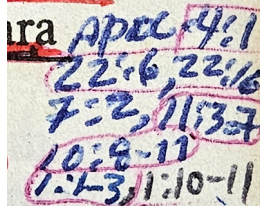 ara apoc 4:1
22:6, 22:16
7:2, 11:3-7
10:8-11
1:1-3, 1:10-11